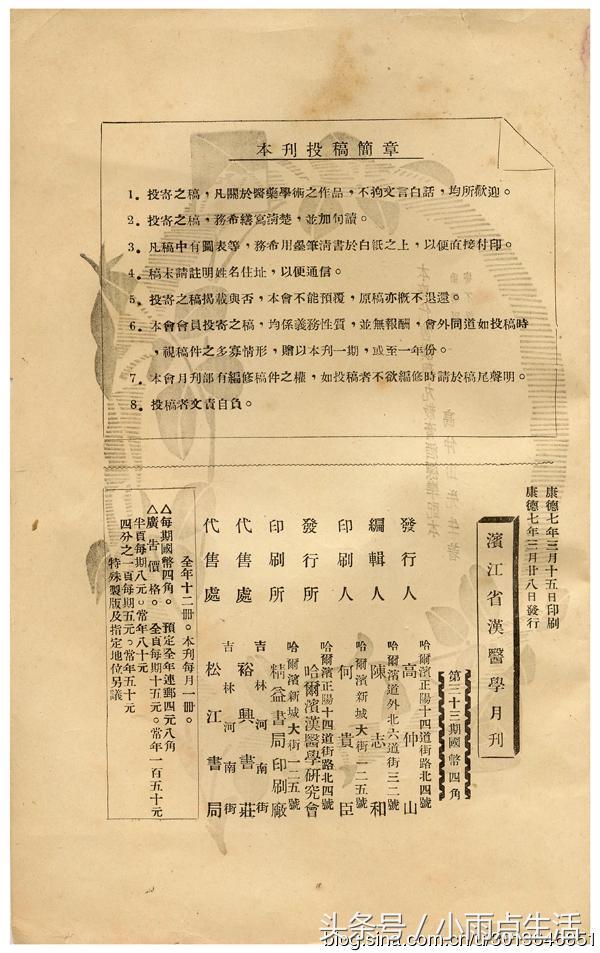 本刊投稿簡章
1. 投寄之稿，凡關於醫藥學術之作品，不狥文言白話，均所歡迎。
2. 投寄之稿，務希繕寫淸楚，並加句讀。
3. 凡稿中有圖表等，務希用墨筆淸書於白紙之上，以便直接付印。
4. 稿末請註明姓名住址，以便通信。
5. 投寄之稿揭載與否，本會不能預覆，原稿亦槪不退還。
6. 本會會員投寄之稿，均係義務性質，並無報酬，會外同道如投稿時
，視稿件之多寡情形，贈以本刊一期，或至一年份。
7. 本會月刊部有編修稿件之權，如投稿者不欲編修時請於稿尾聲明。
8. 投稿者文責自負。
康德七年三月十五日印刷
康德七年三月廿八日發行
濱江省漢醫學月刊
第三十三期國幣四角
哈爾濱正陽十四道街路北四號
發行人 高仲山
哈爾濱道外北六道街三二號
編輯人 陳志和
哈爾濱新城大街一二五號
印刷人 何貴臣
哈爾濱正陽十四道街路北四號
發行所 哈爾濱漢醫學硏究會
哈爾濱新城大街一二五號
印刷所 精益書局印刷廠
吉林河南街
代售處 裕興書莊
吉林河南街
代售處 松江書局
全年十二冊。本刊每月一冊。
△每期國幣四角。 預定全年連郵四元八角
△廣告價格。 全頁每期十五元。常年一百五十元
半頁每期八元。常年八十元
四分之一頁每期五元。常年五十元
特殊製版及指定地位另議
头条号／小雨点生活